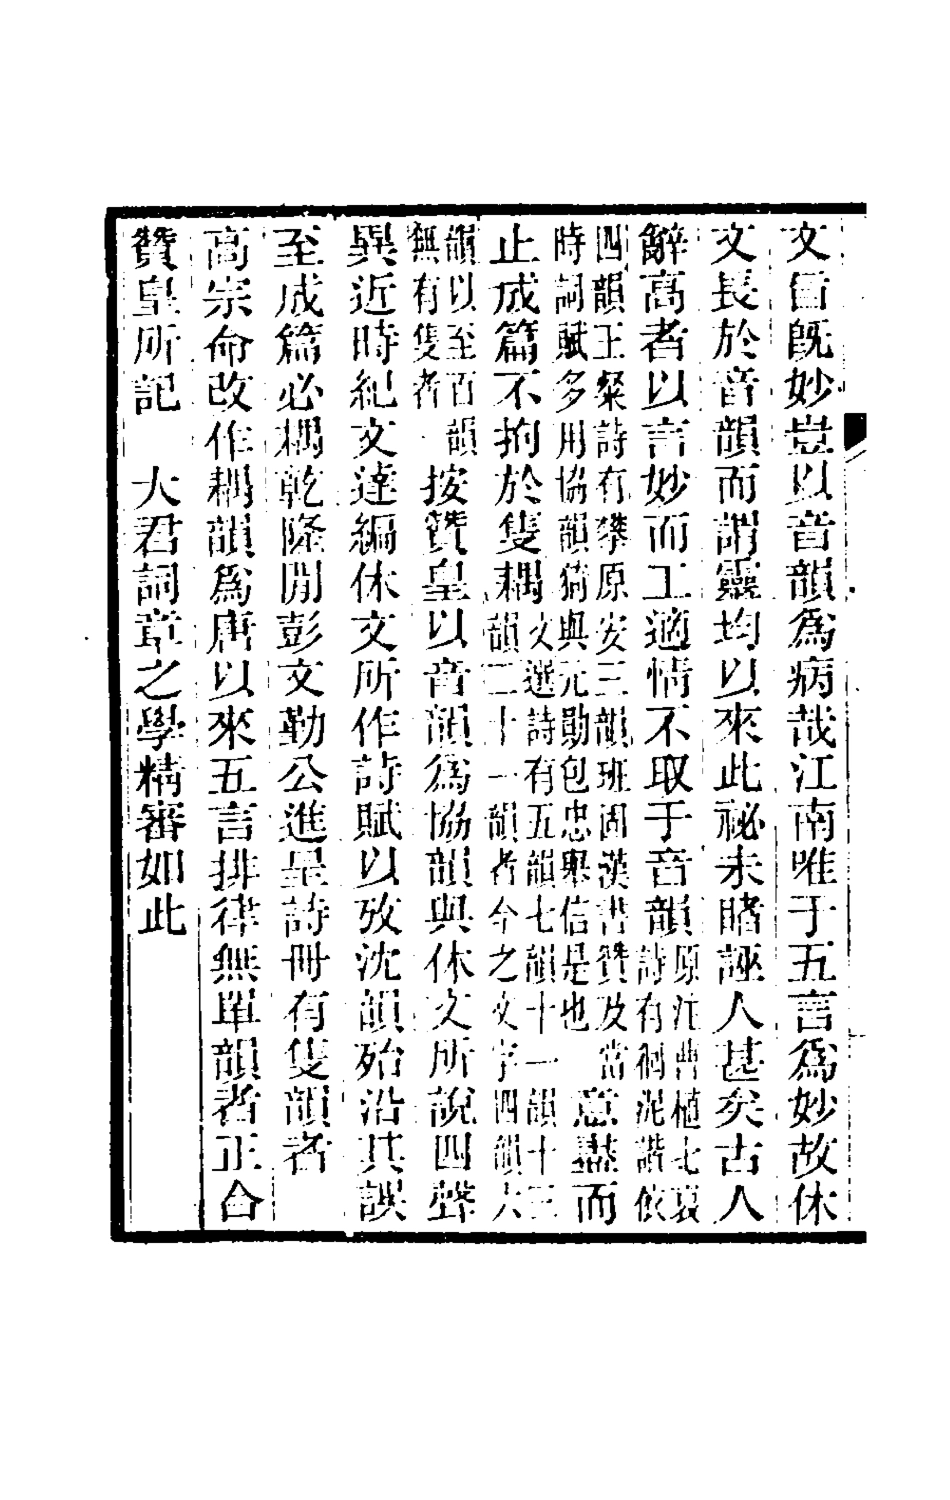 文旨旣妙豈以音韻爲病哉江南唯于五言爲妙故休
文長於音韻而謂靈均以來此祕未睹誣人甚矣古人
辭高者以言妙而工適情不取于音韻原注曹植七哀詩有徊泥諧依
四韻王粲詩有攀原安三韻班固漢書贊及當時詞賦多用協韻猗與元勛包忠舉信是也意盡而
止成篇不拘於隻耦文選詩有五韻七韻十一韻十三韻二十一韻者今之文字四韻六
韻以至百韻無有隻者按贊皇以音韻爲協韻與休文所說四聲
異近時紀文達編休文所作詩賦以攷沈韻殆沿其誤
至成篇必耦乾隆閒彭文勤公進呈詩冊有隻韻者
高宗命改作耦韻爲唐以來五言排律無單韻者正合
贊皇所記　大君詞章之學精審如此